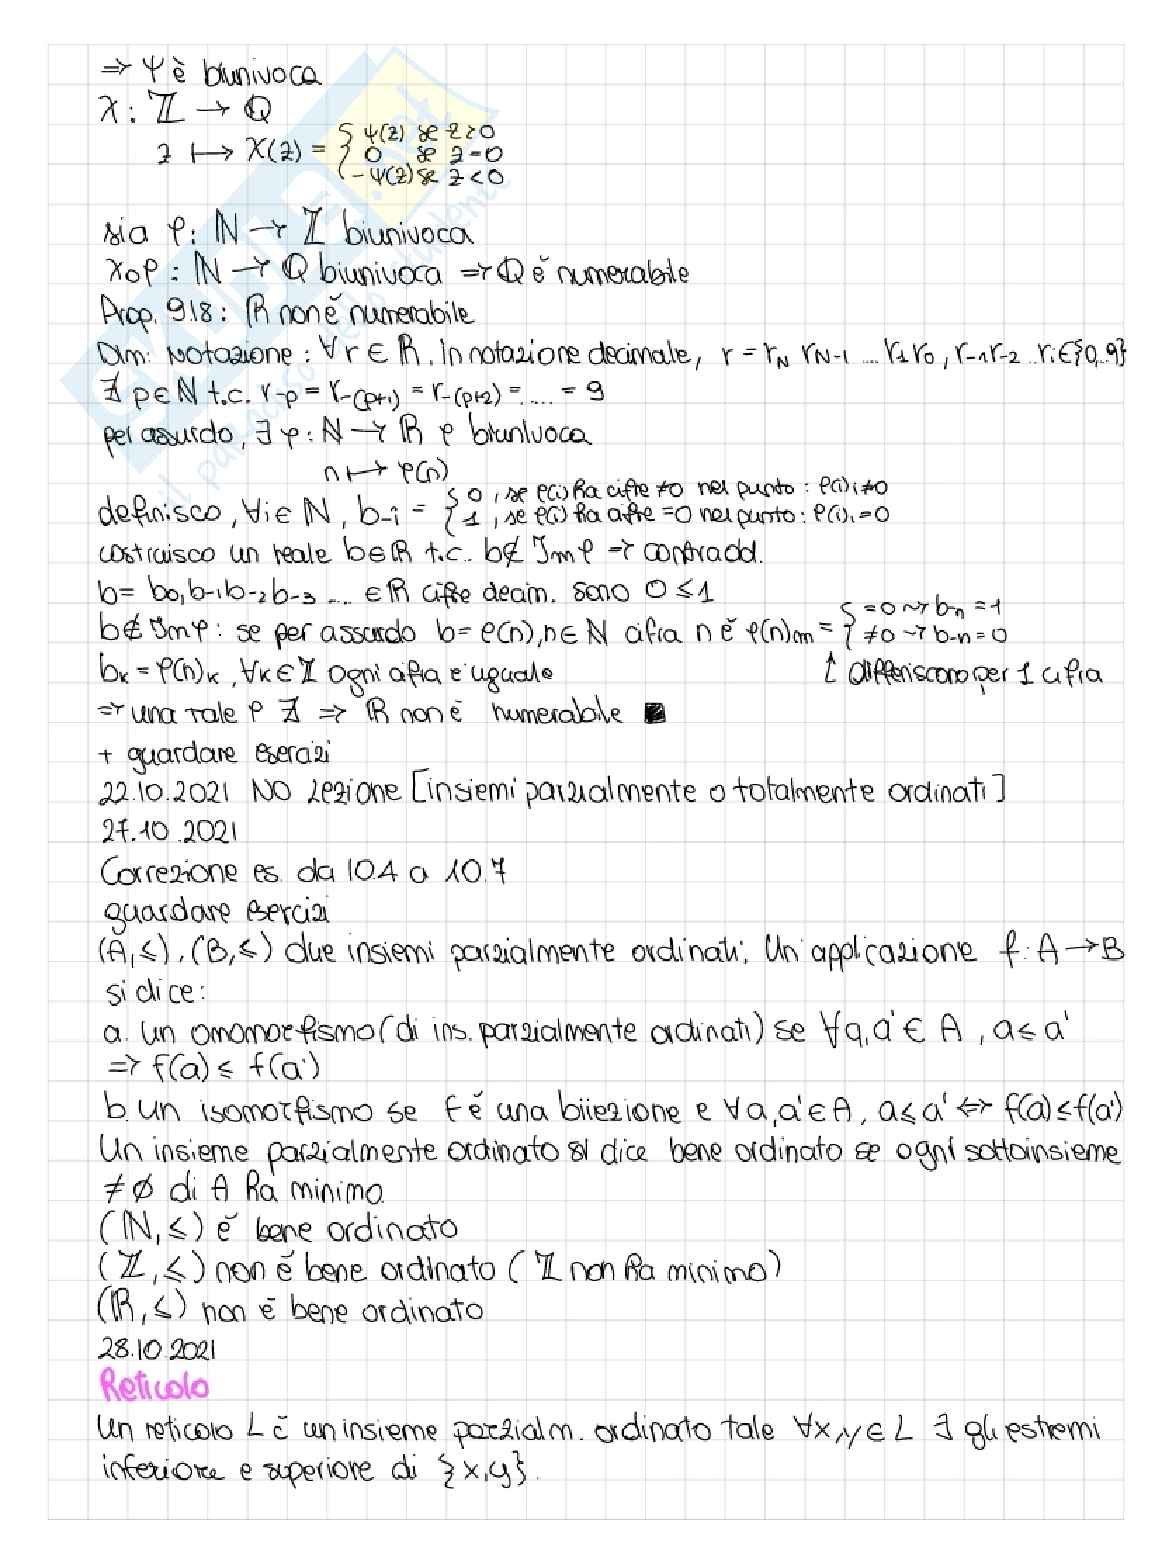 ⇒ Ψ è biunivoca
χ : ℤ → ℚ
z ↦ χ(z) = { ψ(z) se z>0
0 se z=0
-ψ(z) se z<0
sia φ: ℕ → ℤ biunivoca
χ∘φ : ℕ → ℚ biunivoca ⇒ ℚ è numerabile
Prop. 9.18: ℝ non è numerabile
Dim: Notazione: ∀r∈ℝ. In notazione decimale, r = r_N r_N-1 ... r_1 r_0, r_-1 r_-2 .. r_i∈{0..9}
∄ p∈ℕ t.c. r_-p = r_-(p+1) = r_-(p+2) = .... = 9
per assurdo, ∃ φ: ℕ → ℝ φ biunivoca
n ↦ φ(n)
definisco, ∀i∈ℕ, b_-i = { 0, se φ(i) ha cifre ≠0 nel punto: φ(i)_i≠0
1, se φ(i) ha cifre =0 nel punto: φ(i)_i=0
costruisco un reale b∈ℝ t.c. b∉ Imφ → contradd.
b= b_0, b_-1 b_-2 b_-3 ... ∈ℝ cifre decim. sono 0 ≤ 1
b∉ Imφ: se per assurdo b= φ(n), n∈ℕ cifra n è φ(n)_m = { =0 ⇝ b_-n = 1
≠0 ⇝ b_-n = 0
b_k = φ(n)_k, ∀k∈ℤ ogni cifra è uguale ↑ differiscono per 1 cifra
⇒ una tale φ ∄ ⇒ ℝ non è numerabile ■
+ guardare esercizi
22.10.2021 NO Lezione [insiemi parzialmente o totalmente ordinati]
27.10.2021
Correzione es. da 10.4 a 10.7
guardare esercizi
(A,≤), (B,≤) due insiemi parzialmente ordinati; Un applicazione f: A→B
si dice:
a. un omomorfismo (di ins. parzialmente ordinati) se ∀a,a'∈ A, a≤a'
⇒ f(a) ≤ f(a')
b. un isomorfismo se f è una biiezione e ∀a,a'∈A, a≤a' ⇔ f(a)≤f(a')
Un insieme parzialmente ordinato si dice bene ordinato se ogni sottoinsieme
≠∅ di A ha minimo
(ℕ,≤) è bene ordinato
(ℤ,≤) non è bene ordinato (ℤ non ha minimo)
(ℝ,≤) non è bene ordinato
28.10.2021
Reticolo
Un reticolo L è un insieme parzialm. ordinato tale ∀x,y∈L ∃ gli estremi
inferiore e superiore di {x,y}.